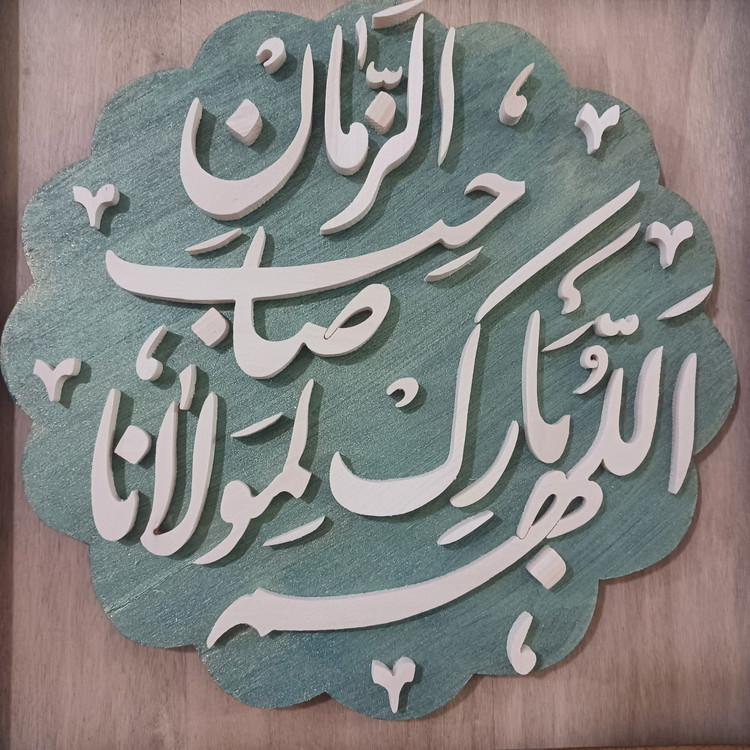 اللّهُم بارِک لِمَولانا
صاحِبِ
الزَّمان